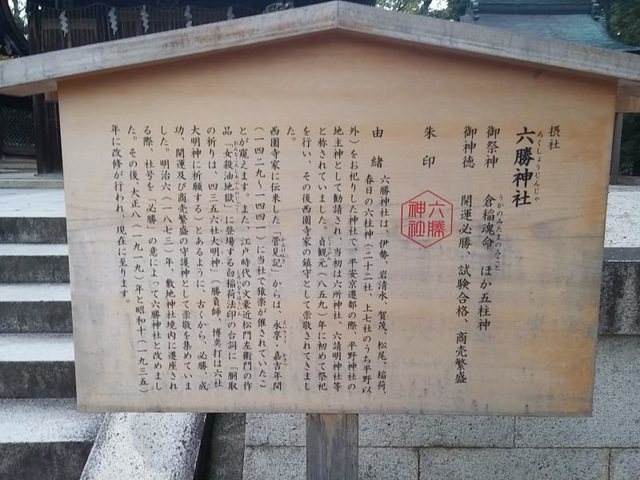 摂社
六勝神社
ろくしょうじんじゃ
御祭神 倉稲魂命 ほか五柱神
うかのみたまのみこと
御神徳 開運必勝、試験合格、商売繁盛
朱印
六勝神社
由緒 六勝神社は、伊勢、岩清水、賀茂、松尾、稲荷、
春日の六柱神(二十二社、上七社のうち平野以
外)をお祀りした神社で、平安京遷都の際、平野神社の
地主神として勧請され、当初は六所神社、六請明神社等
と称されていました。貞観元(八五九)年に初めて祭祀
を行い、その後西園寺家の鎮守として崇敬されてきまし
た。
西園寺家に伝来した「管見記」からは、永享・嘉吉年間
(一四二九〜一四四一)に当社で猿楽が催されていたこ
とが窺えます。また、江戸時代の文豪近松門左衛門の作
品「女殺油地獄」に登場する白稲荷法印の台詞に「胴取
の祈りは、四三五六社大明神」「勝負師、博奕打は六社
大明神に祈願する」とあるように、古くから、必勝、成
功、開運及び商売繁盛の守護神として崇敬を集めていま
した。明治六(一八七三)年、敷地神社境内に遷座され
る際、社号を「必勝」の意によって六勝神社と改めまし
た。その後、大正八(一九一九)年と昭和十(一九三五)
年に改修が行われ、現在に至ります。